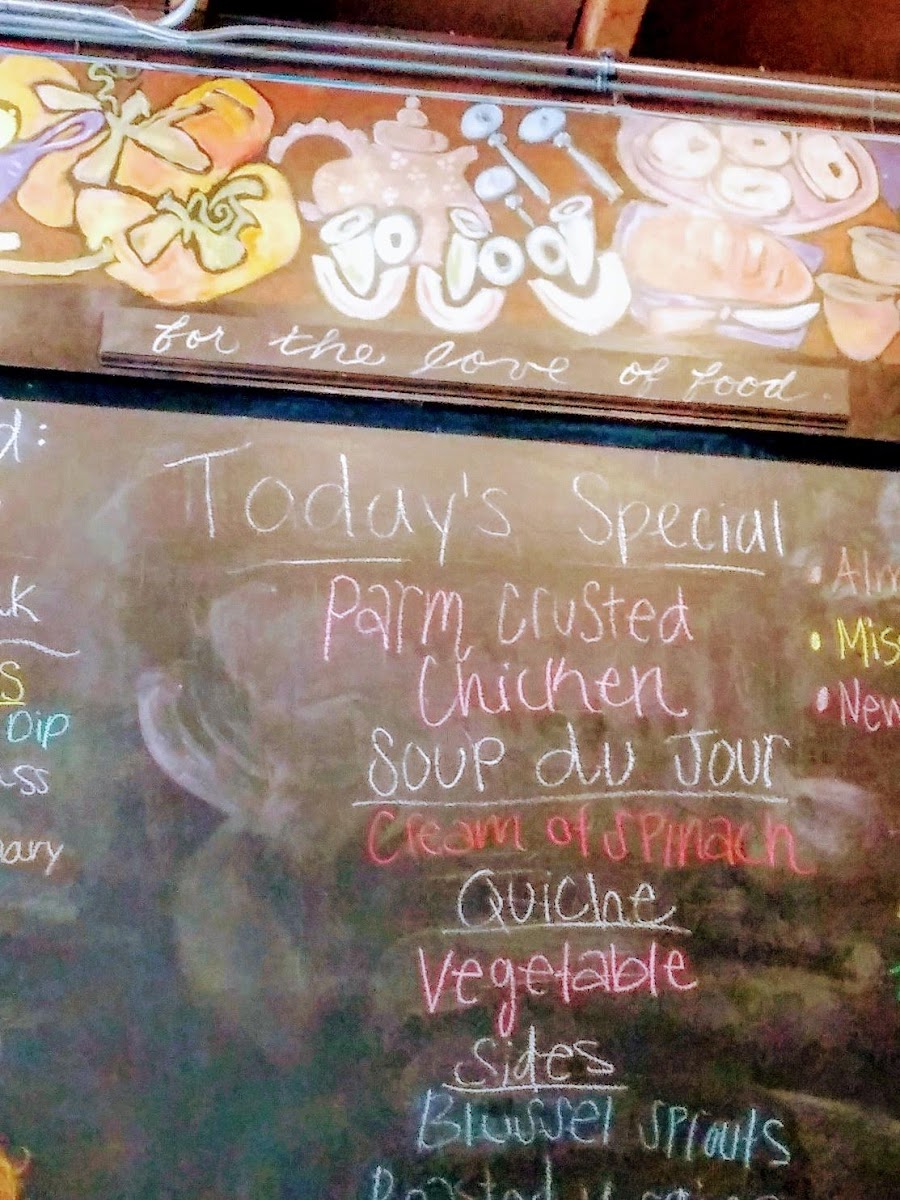 for the love of food.
d:
Today's Special
Parm crusted
Chicken
Soup du Jour
Cream of spinach
Quiche
Vegetable
Sides
Brussel sprouts
Roasted
S
Dip
• Alm
• Miso
• New